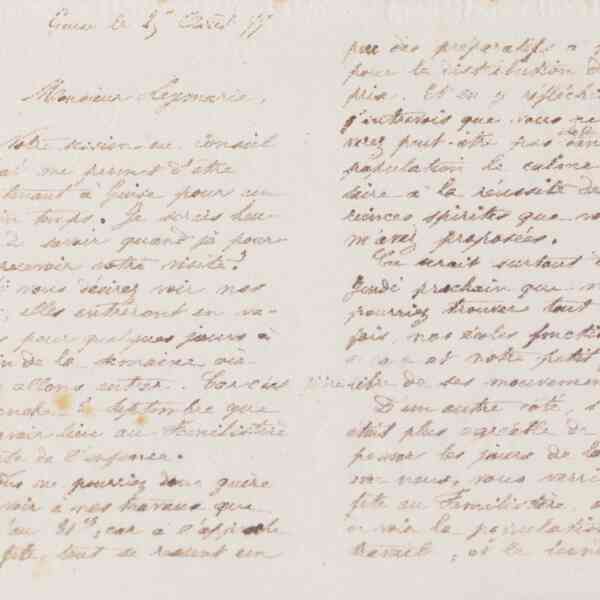 Guise le 25 Août 77
Monsieur Leymarie,
Votre mission au Conseil
m'a permis d'être
à Guise pour un
temps. Je serais heu-
de savoir quand je pour-
recevoir votre visite?
Si vous désirez voir nos
elles entreront en va-
pour quelques jours à
fin de la semaine où
allons entrer. Car c'est
le 2 Septembre que
avoir lieu au Familistère
fête de l'enfance.
Vous ne pourriez donc guère
voir à nos travaux que
qu'au 31 ct, car à l'approche
fête, tout se ressent un
peu des préparatifs à
pour la distribution de
prix. Et en y réfléchi
j'entrevois que vous ne
verez peut-être pas dans
population le calme
saire à la réussite de
riences spirites que vo
m'avez proposées.
Ce serait surtout
Jeudi prochain que
pourriez trouver tout
fois, nos écoles fonctio
et notre petit
de ses mouvements
D'un autre côté, s
était plus agréable de
passer les jours de la
nous, vous verri
fête au Familistère,
voir la population
travail, et le